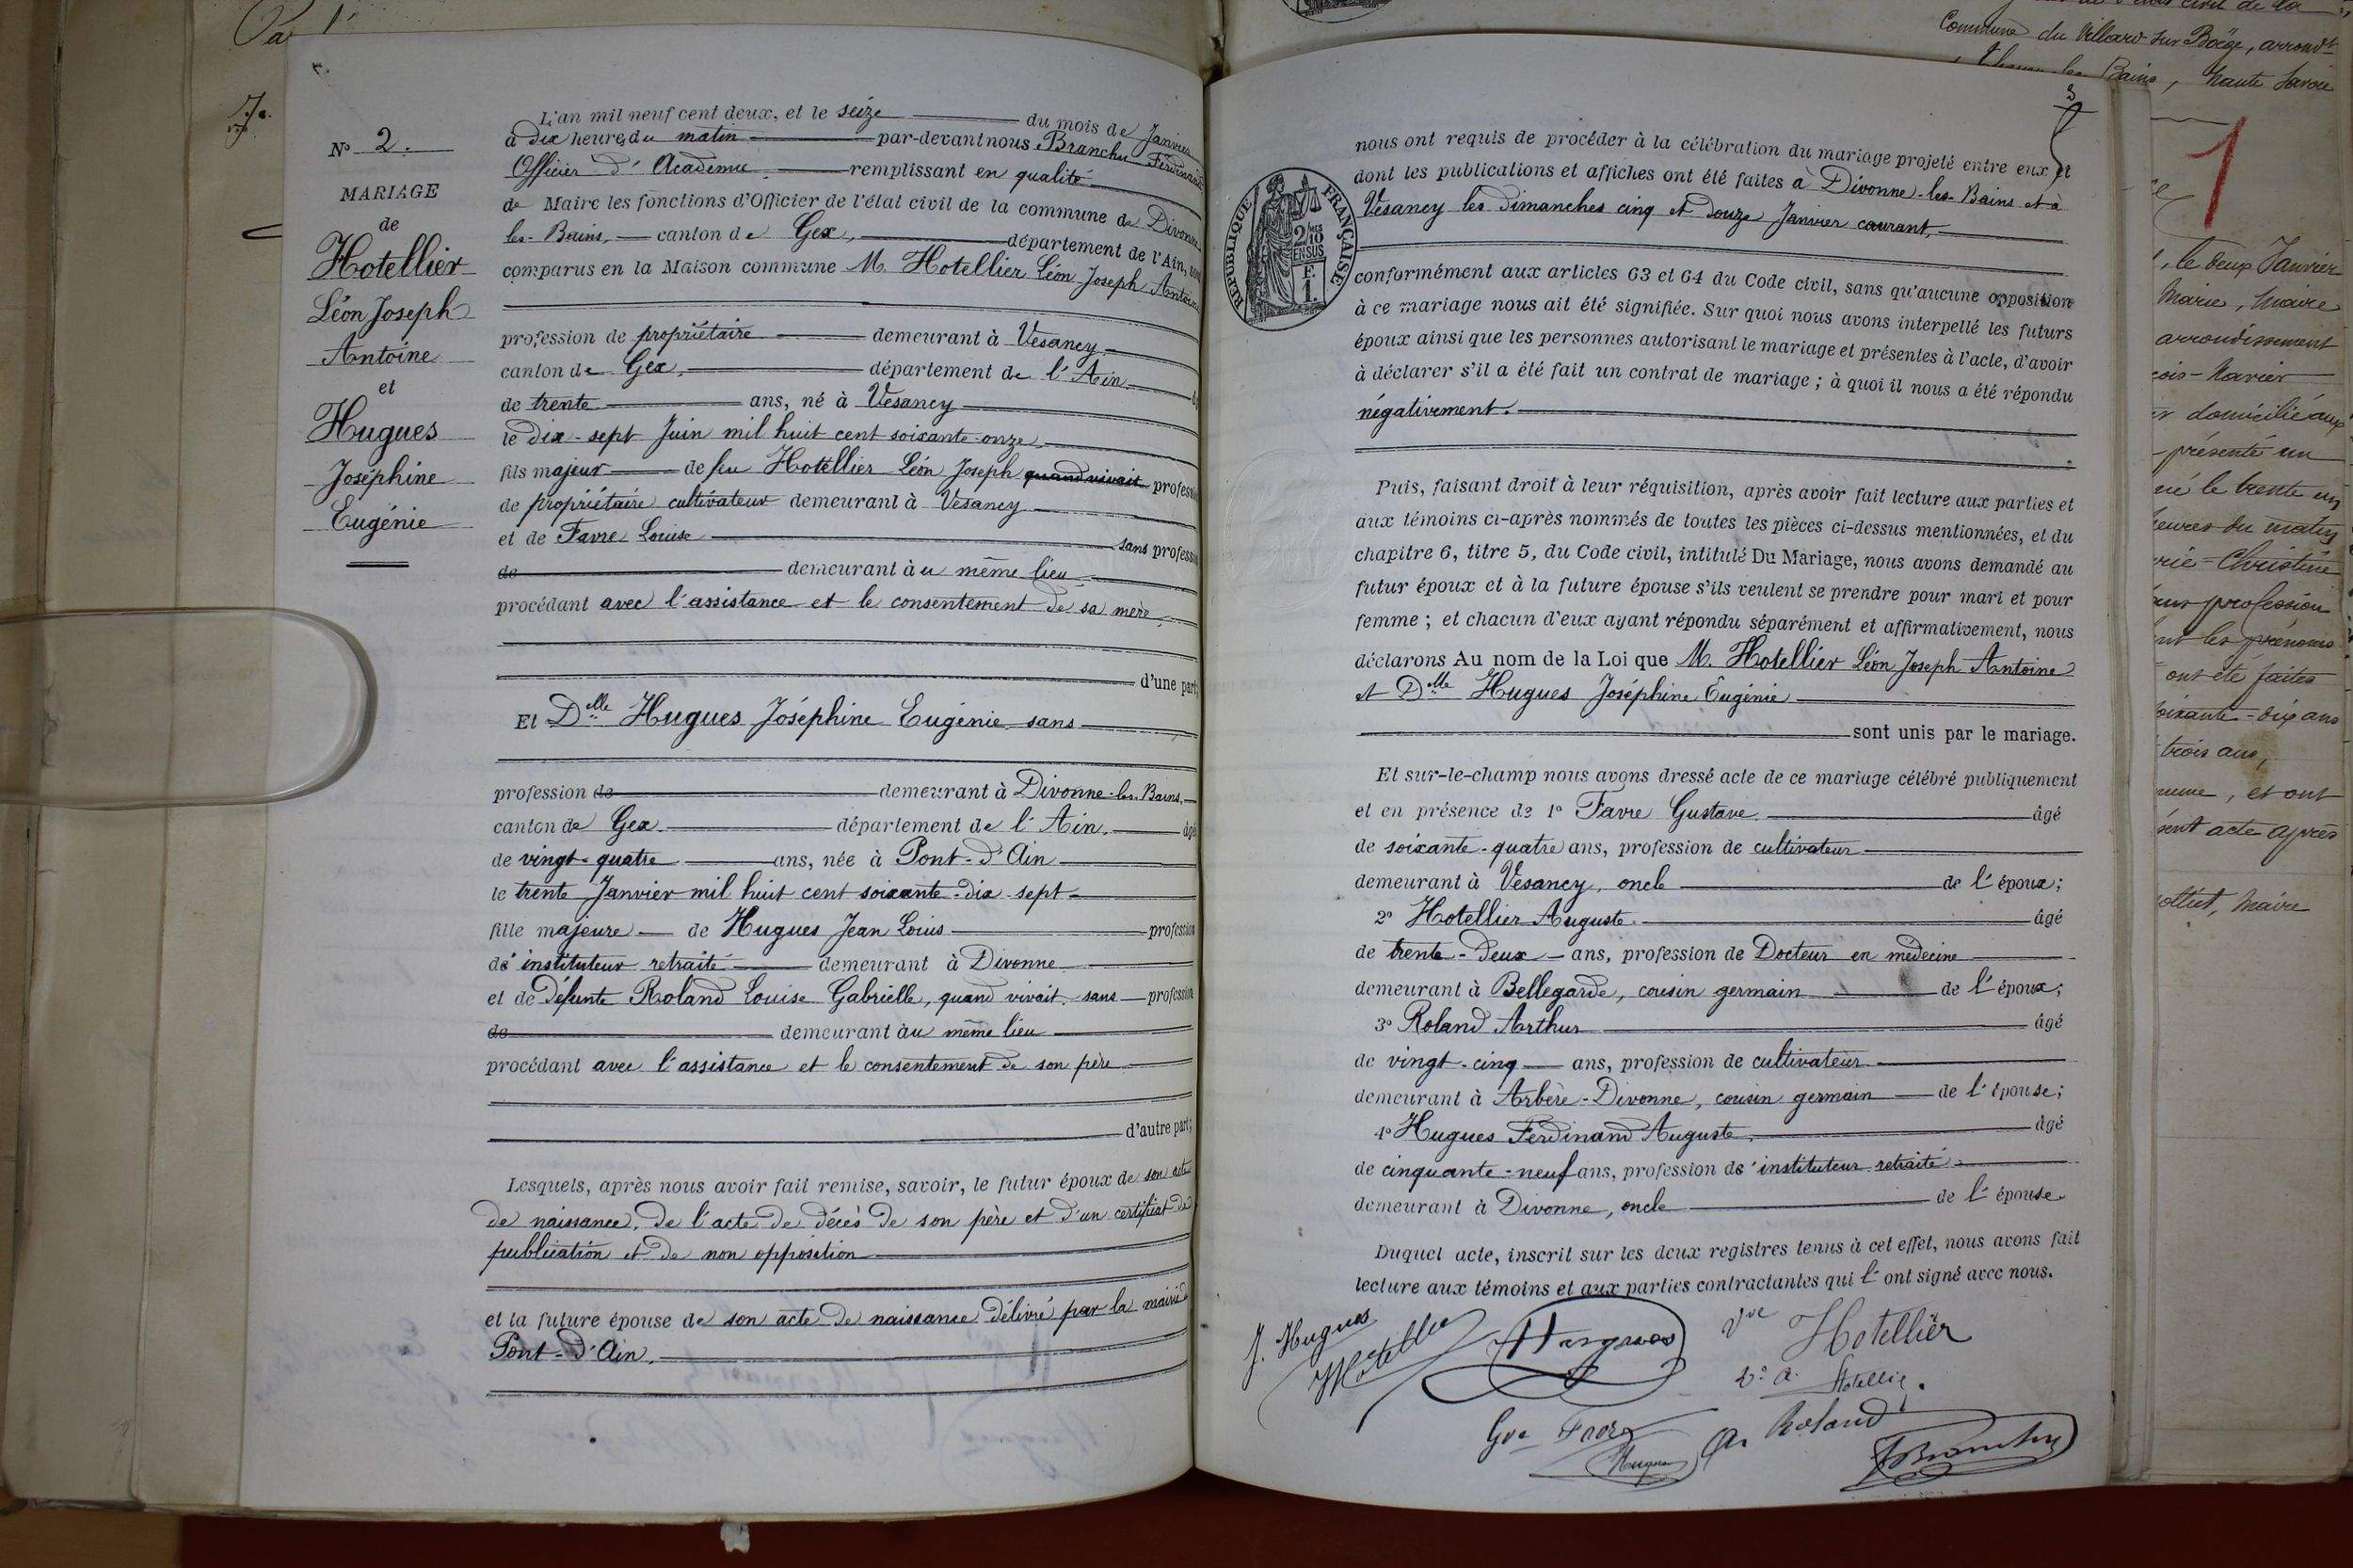 N° 2.
MARIAGE
de
Hotellier
Léon Joseph
Antoine
et
Hugues
Joséphine
Eugénie
L'an mil neuf cent deux, et le seize du mois de Janvier
à dix heures du matin par-devant nous Branchu Ferdinand
Officier d'Académie, remplissant en qualité
de Maire les fonctions d'Officier de l'état civil de la commune de Divonne
les-Bains, canton de Gex, département de l'Ain, sont
comparus en la Maison commune M. Hotellier Léon Joseph Antoine
profession de propriétaire demeurant à Vesancy
canton de Gex, département de l'Ain
de trente ans, né à Vesancy
le dix-sept Juin mil huit cent soixante-onze
fils majeur de feu Hotellier Léon Joseph quand vivait profession
de propriétaire cultivateur demeurant à Vesancy
et de Favre Louise sans profession
de demeurant à u même lieu
procédant avec l'assistance et le consentement de sa mère,
d'une part;
Et Delle Hugues Joséphine Eugénie sans
profession de demeurant à Divonne-les-Bains,
canton de Gex. département de l'Ain. âgée
de vingt-quatre ans, née à Pont-d'Ain
le trente Janvier mil huit cent soixante-dix-sept
fille majeure de Hugues Jean Louis profession
d' instituteur retraité demeurant à Divonne
et de défunte Roland Louise Gabrielle, quand vivait sans profession
de demeurant au même lieu
procédant avec l'assistance et le consentement de son père
d'autre part;
Lesquels, après nous avoir fait remise, savoir, le futur époux de son acte
de naissance, de l'acte de décès de son père et d'un certificat de
publication et de non opposition
et la future épouse de son acte de naissance délivré par la mairie de
Pont-d'Ain.
3
nous ont requis de procéder à la célébration du mariage projeté entre eux et
dont les publications et affiches ont été faites à Divonne-les-Bains et à
Vesancy les dimanches cinq et douze Janvier courant,
RÉPUBLIQUE FRANÇAISE
2/10 EN SUS
F. 1.
conformément aux articles 63 et 64 du Code civil, sans qu'aucune opposition
à ce mariage nous ait été signifiée. Sur quoi nous avons interpellé les futurs
époux ainsi que les personnes autorisant le mariage et présentes à l'acte, d'avoir
à déclarer s'il a été fait un contrat de mariage ; à quoi il nous a été répondu
négativement.
Puis, faisant droit à leur réquisition, après avoir fait lecture aux parties et
aux témoins ci-après nommés de toutes les pièces ci-dessus mentionnées, et du
chapitre 6, titre 5, du Code civil, intitulé Du Mariage, nous avons demandé au
futur époux et à la future épouse s'ils veulent se prendre pour mari et pour
femme ; et chacun d'eux ayant répondu séparément et affirmativement, nous
déclarons Au nom de la Loi que M. Hotellier Léon Joseph Antoine
et Delle Hugues Joséphine Eugénie
sont unis par le mariage.
Et sur-le-champ nous avons dressé acte de ce mariage célébré publiquement
et en présence de 1° Favre Gustave âgé
de soixante-quatre ans, profession de cultivateur
demeurant à Vesancy, oncle de l'époux;
2° Hotellier Auguste âgé
de trente-deux ans, profession de Docteur en médecine
demeurant à Bellegarde, cousin germain de l'époux;
3° Roland Arthur âgé
de vingt-cinq ans, profession de cultivateur
demeurant à Arbère-Divonne, cousin germain de l'épouse;
4° Hugues Ferdinand Auguste, âgé
de cinquante-neuf ans, profession d' instituteur retraité
demeurant à Divonne, oncle de l'épouse.
Duquel acte, inscrit sur les deux registres tenus à cet effet, nous avons fait
lecture aux témoins et aux parties contractantes qui l' ont signé avec nous.
J. Hugues
Hotellier
Hugues
Vve Hotellier
Dr A. Hotellier.
Gve Favre
Hugues
Ar Roland
FBranchu
Commune du Villard-sur-Boëge, arrondt
Bains, Haute Savoie
1
, le deux Janvier
Marie, Maire
arrondissement
domicilié aux
présenté un
né le trente un
heures du matin
Christine
profession
les prénoms
ont été faites
soixante-dix ans
trois ans,
et ont
acte après
Maire